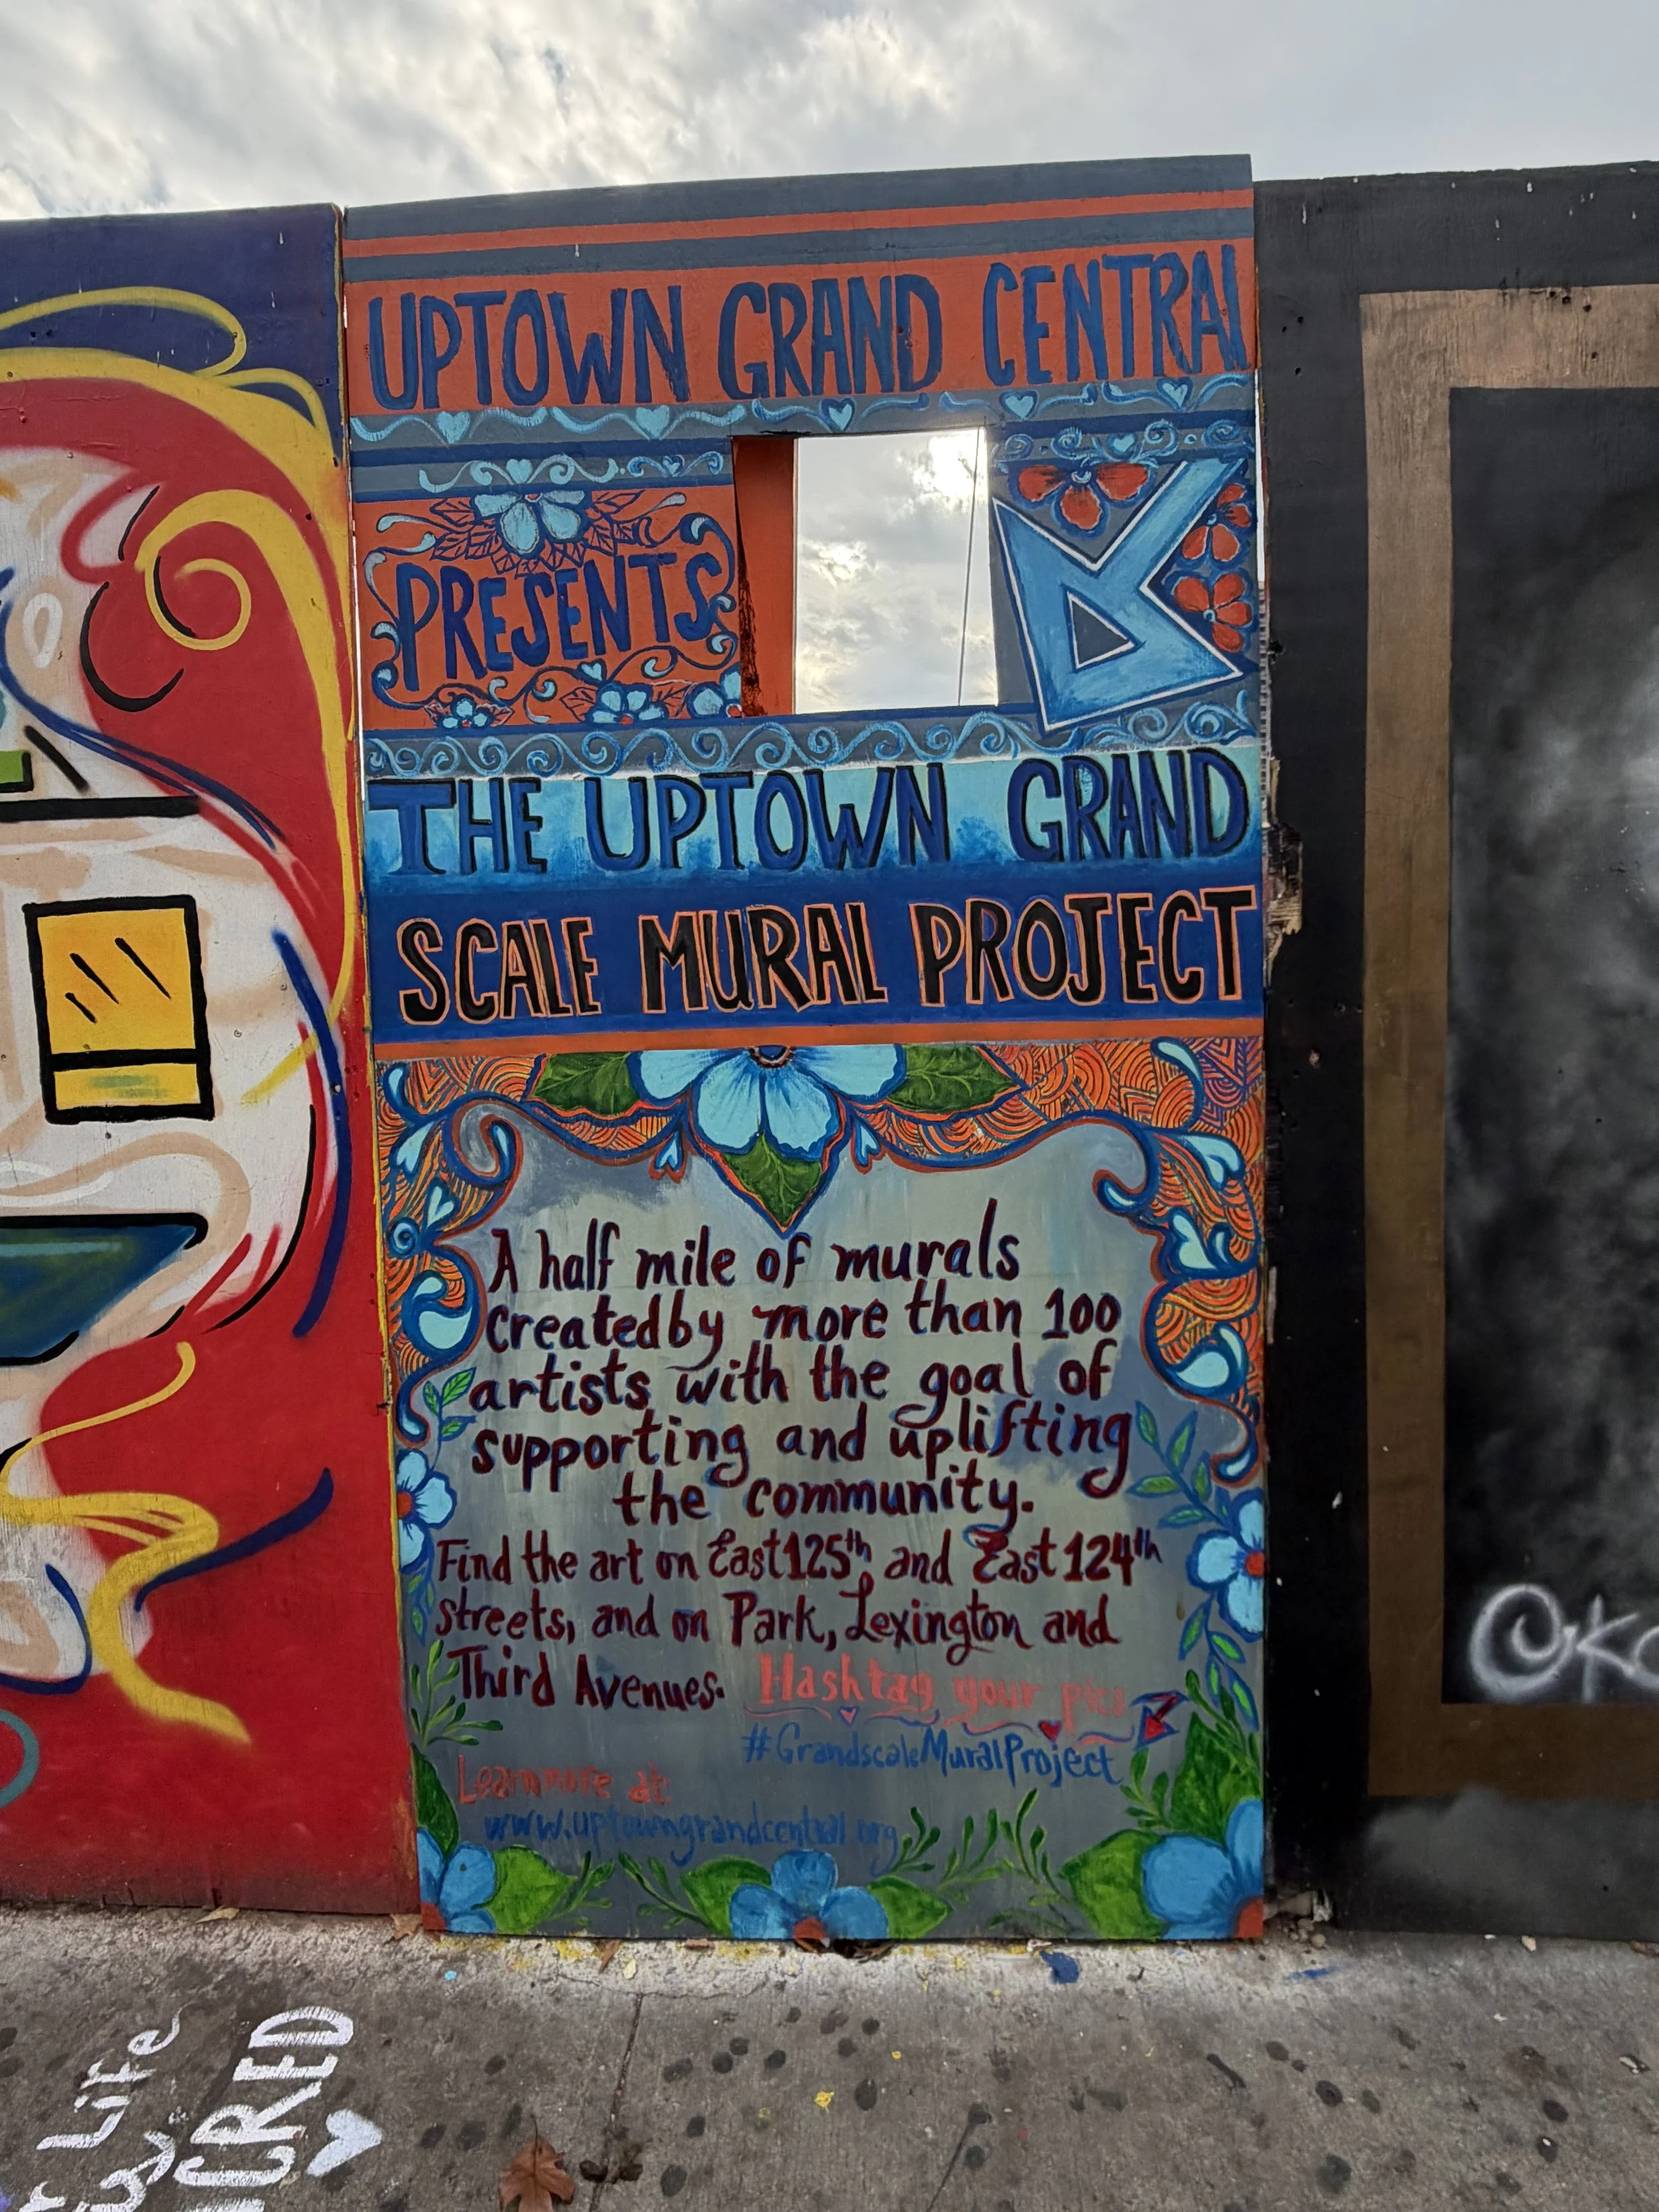 UPTOWN GRAND CENTRAL
PRESENTS
THE UPTOWN GRAND
SCALE MURAL PROJECT
A half mile of murals
created by more than 100
artists with the goal of
supporting and uplifting
the community.
Find the art on East 125th, and East 124th
streets, and on Park, Lexington and
Third Avenues. Hashtag your pics
#GrandscaleMuralProject
Learn more at:
www.uptowngrandcentral.org
Life